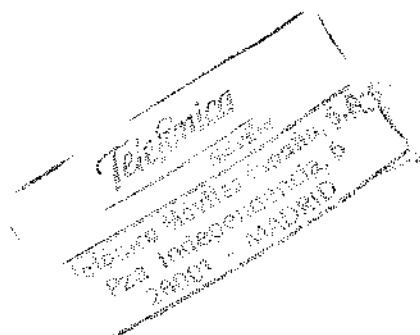 Telefónica
Móviles España, S.A.
Pza. Independencia, 6
28001 - MADRID